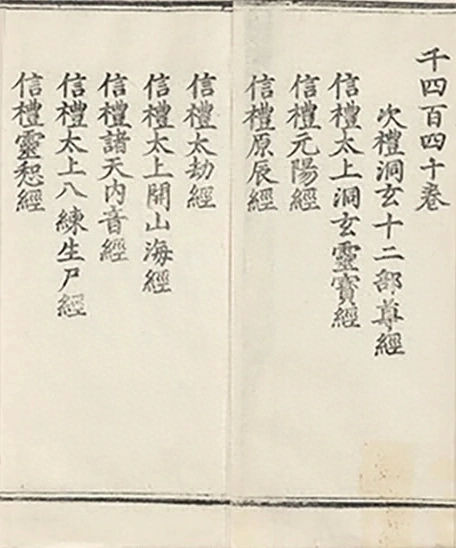 千四百四十卷
次禮洞玄十二部尊經
信禮太上洞玄靈寶經
信禮元陽經
信禮原辰經
信禮太劫經
信禮太上開山海經
信禮諸天內音經
信禮太上八練生尸經
信禮靈恕經